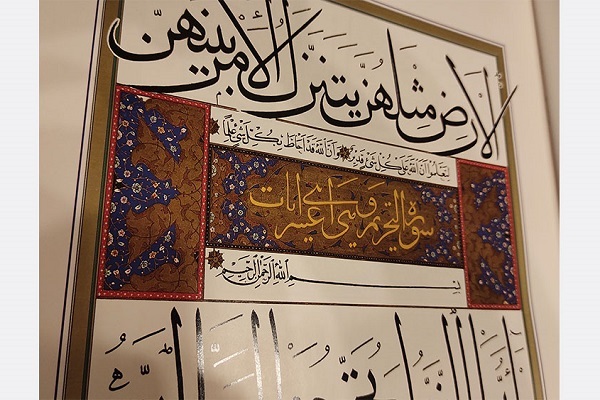 الأرض مثلهن يتنزل الأمر بينهن
لتعلموا أن الله على كل شيء قدير وأن الله قد أحاط بكل شيء علما
سورة التحريم وهي اثنى عشر آيات
بسم الله الرحمن الرحيم
يا أيها النبي لم تحرم